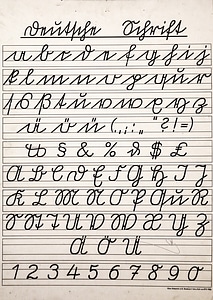 Deutsche Schrift
a b c d e f g h i j
k l m n o p q u r
ſ s ß t u v w x y z
ä ö ü ( . , ; : „ “ ? ! = )
§ & % $ £
A B C D E F G H I J
K L M N O P Qu R
S St T U V W X Y Z
Ä Ö Ü
1 2 3 4 5 6 7 8 9 0